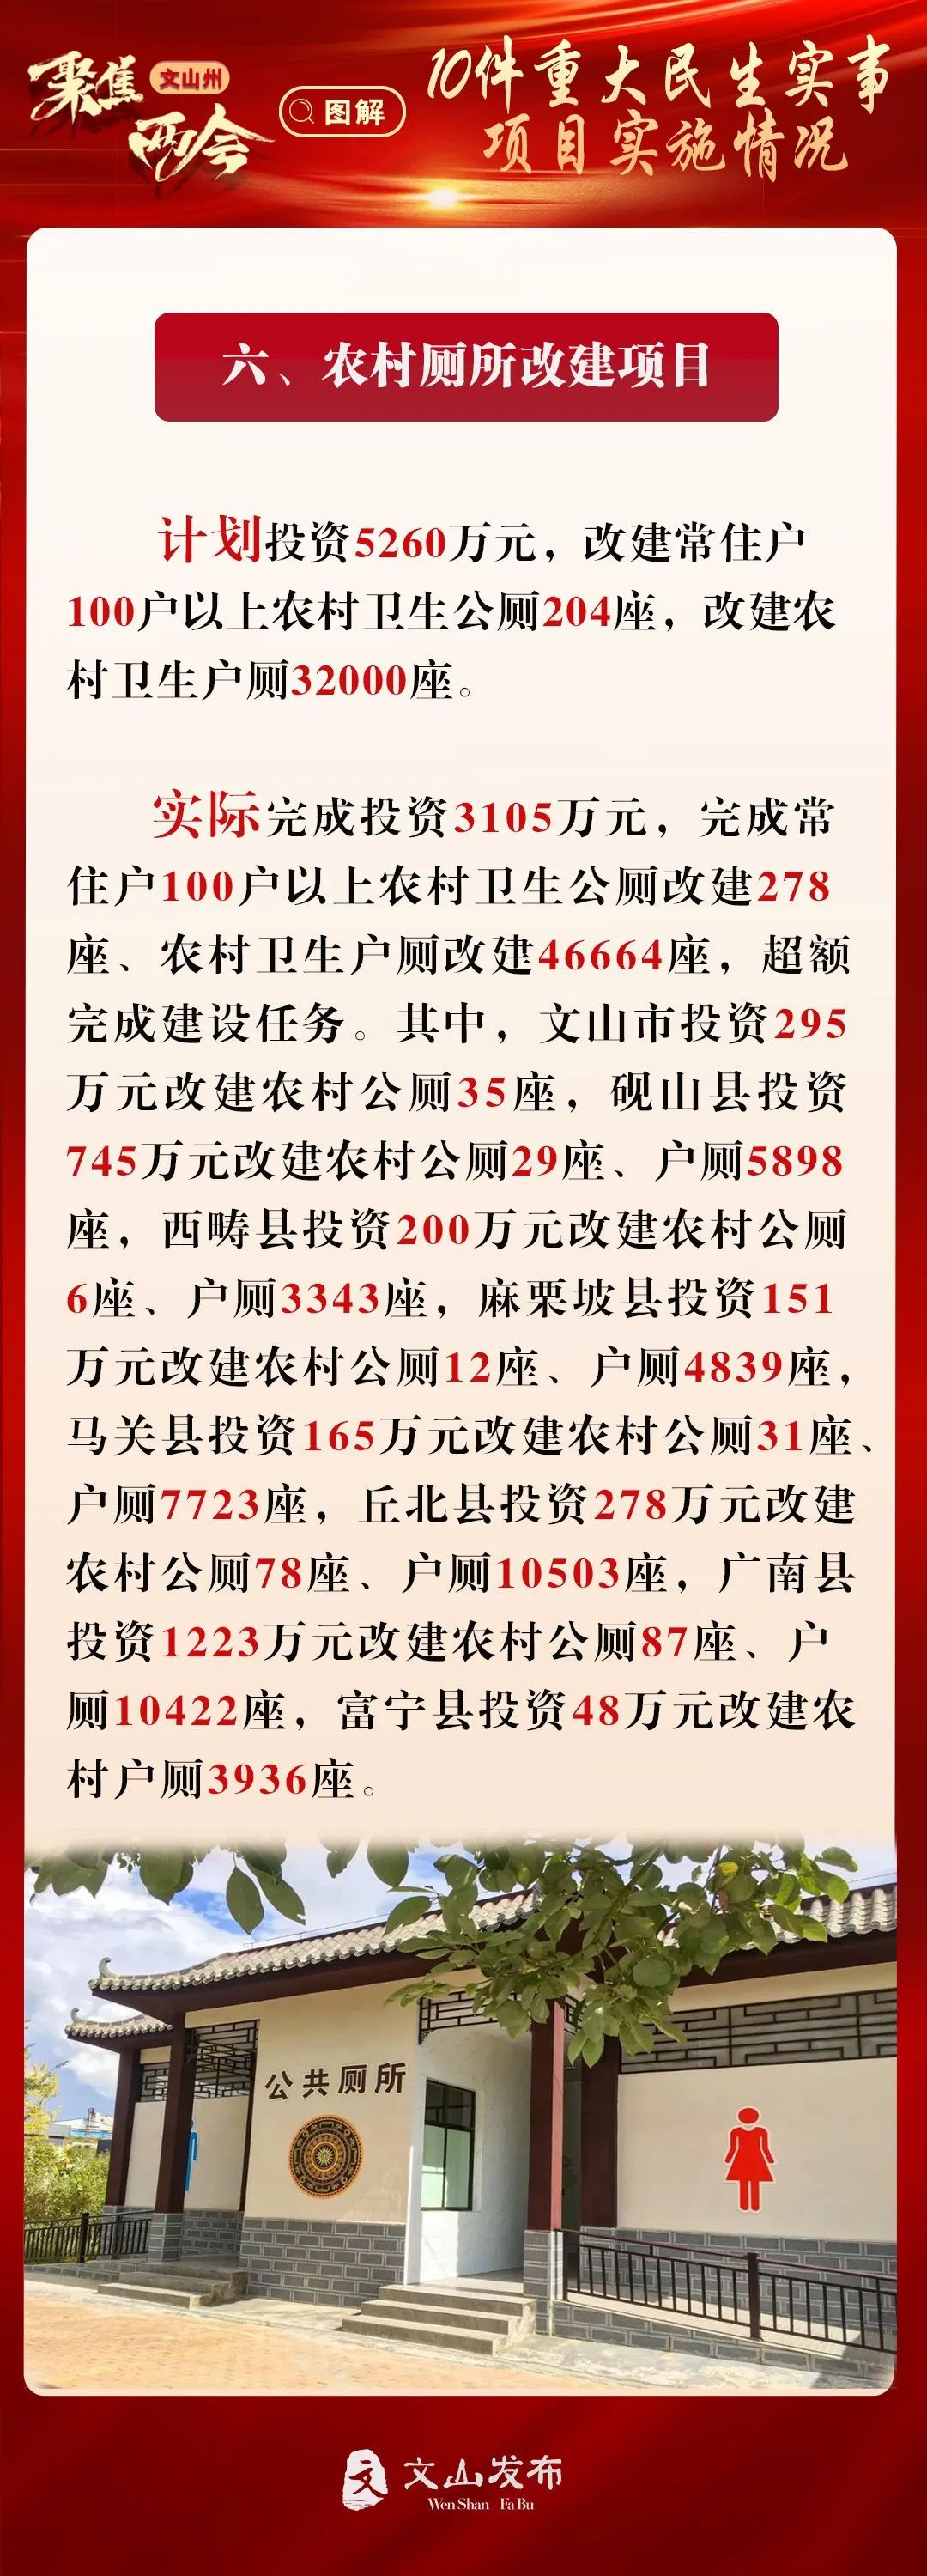 聚焦
文山州
两会
图解
10件重大民生实事
项目实施情况
六、农村厕所改建项目
计划投资5260万元，改建常住户
100户以上农村卫生公厕204座，改建农
村卫生户厕32000座。
实际完成投资3105万元，完成常
住户100户以上农村卫生公厕改建278
座、农村卫生户厕改建46664座，超额
完成建设任务。其中，文山市投资295
万元改建农村公厕35座，砚山县投资
745万元改建农村公厕29座、户厕5898
座，西畴县投资200万元改建农村公厕
6座、户厕3343座，麻栗坡县投资151
万元改建农村公厕12座、户厕4839座，
马关县投资165万元改建农村公厕31座、
户厕7723座，丘北县投资278万元改建
农村公厕78座、户厕10503座，广南县
投资1223万元改建农村公厕87座、户
厕10422座，富宁县投资48万元改建农
村户厕3936座。
公共厕所
文
文山发布
Wen Shan Fa Bu